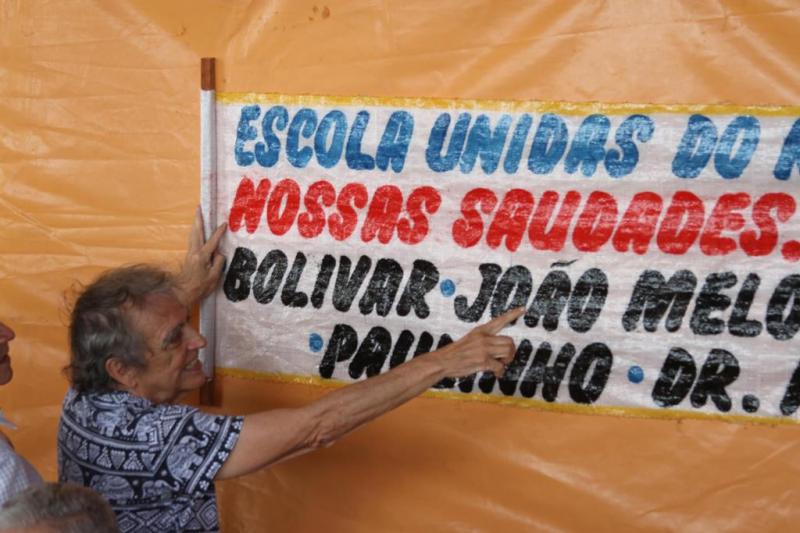 ESCOLA UNIDAS DO
NOSSAS SAUDADES.
BOLIVAR • JOÃO MELO
• PAULINHO • DR.